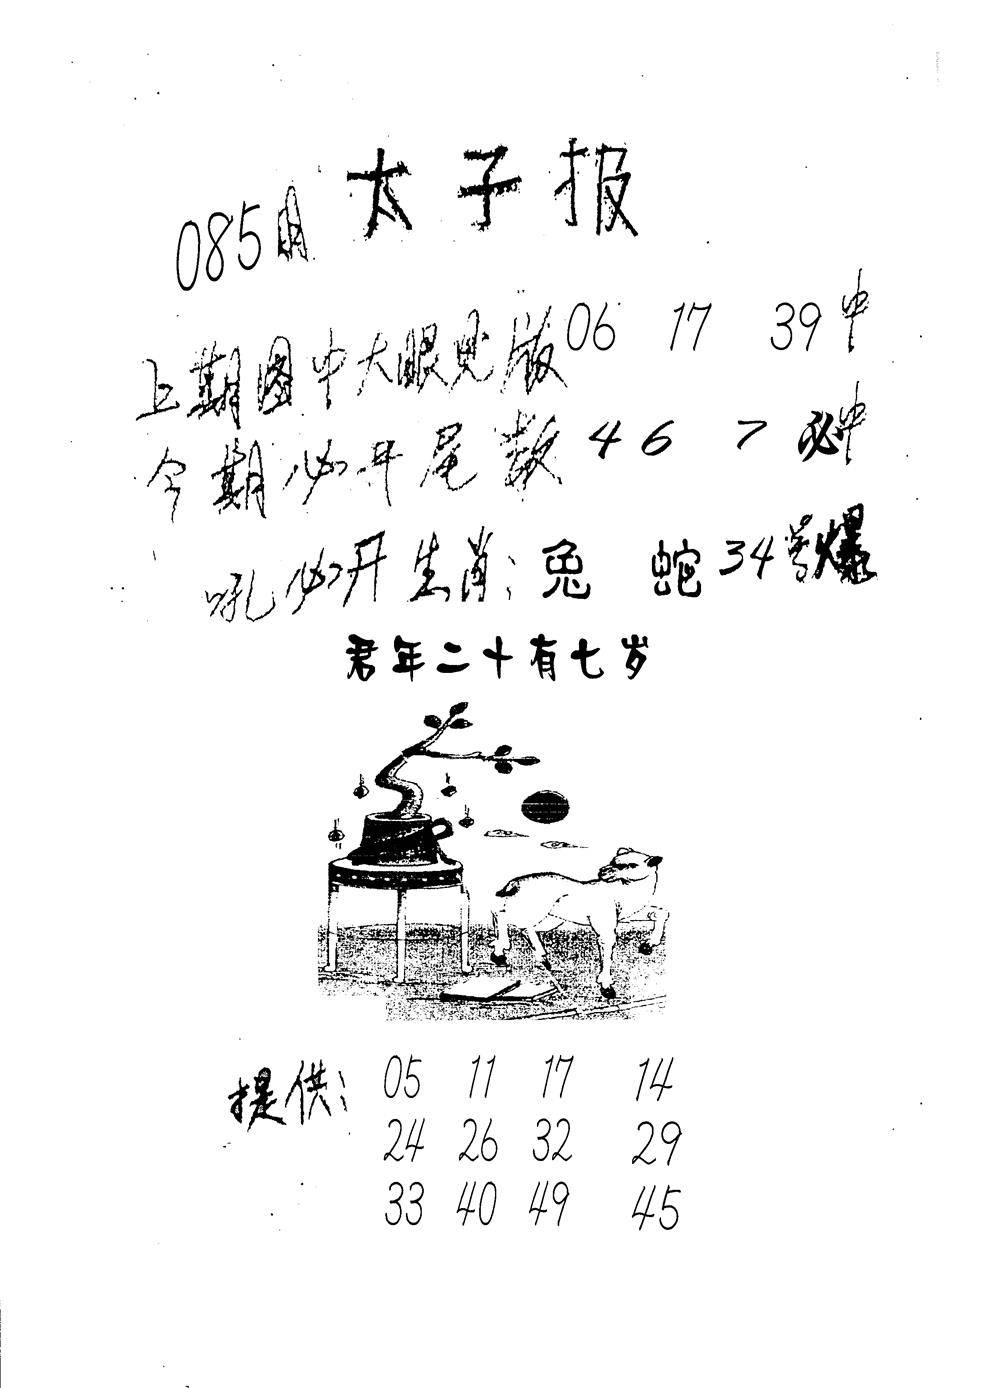 太子报
085期
上期图中大眼见版06 17 39中
今期必开尾数4 6 7必中
必开生肖：兔 蛇34号爆
君年二十有七岁
提供： 05 11 17 14
24 26 32 29
33 40 49 45